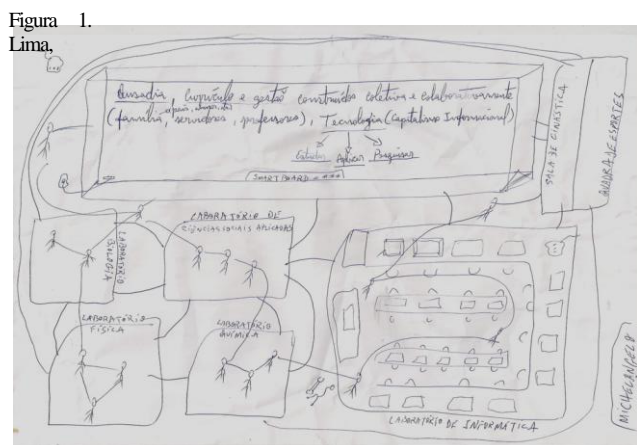 Figura 1.
Lima,
Ousadia, Currículo e gestão construídos coletiva e colaborativamente
(família, servidores, professores), Tecnologia (Capitalismo Informacional)
Estudar Aplicar Pesquisar
SMARTBOARD
SALA DE GINÁSTICA
QUADRA DE ESPORTES
LABORATÓRIO DE
CIÊNCIAS SOCIAIS APLICADAS
LABORATÓRIO
BIOLOGIA
LABORATÓRIO
FÍSICA
LABORATÓRIO
QUÍMICA
LABORATÓRIO DE INFORMÁTICA
MICHELANGELO